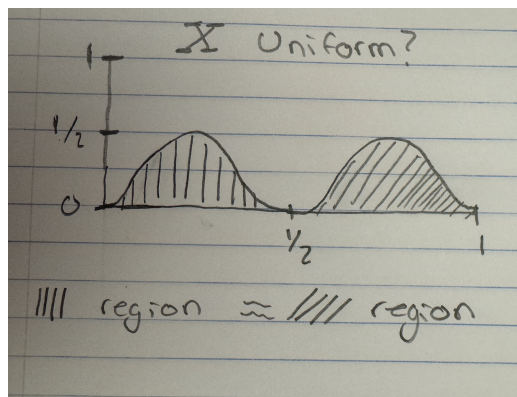 X Uniform?
1
1/2
0
1/2
1
region ≈ region